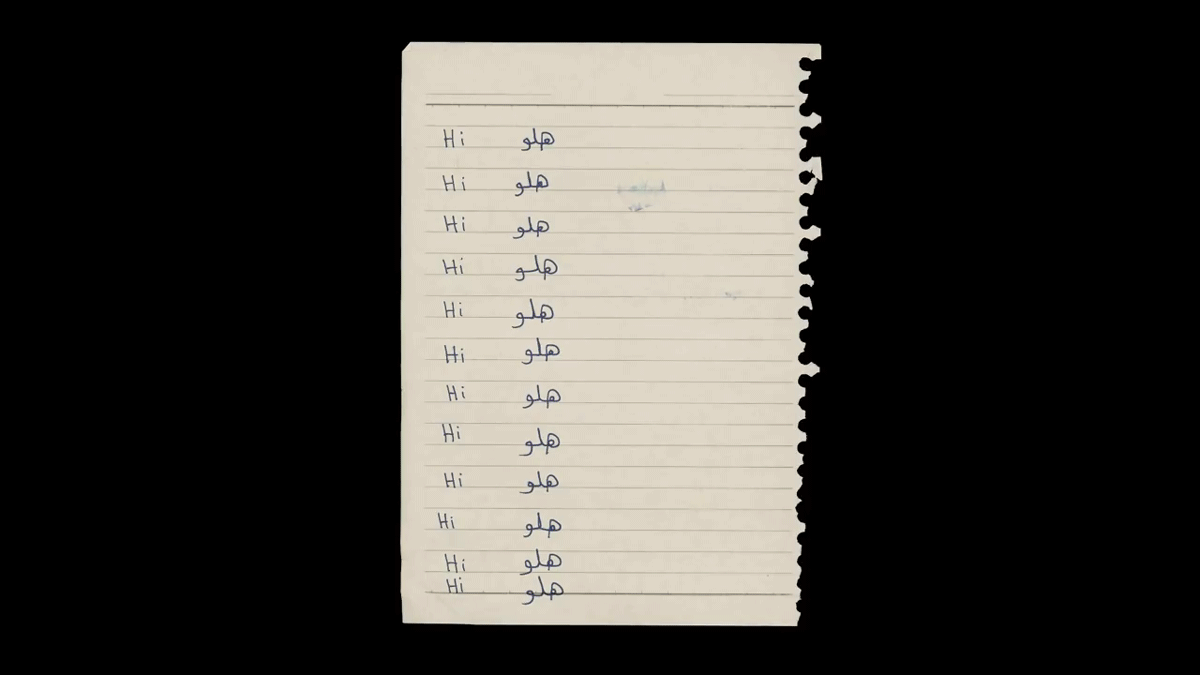 Hi هلو
Hi هلو
Hi هلو
Hi هلو
Hi هلو
Hi هلو
Hi هلو
Hi هلو
Hi هلو
Hi هلو
Hi هلو
Hi هلو